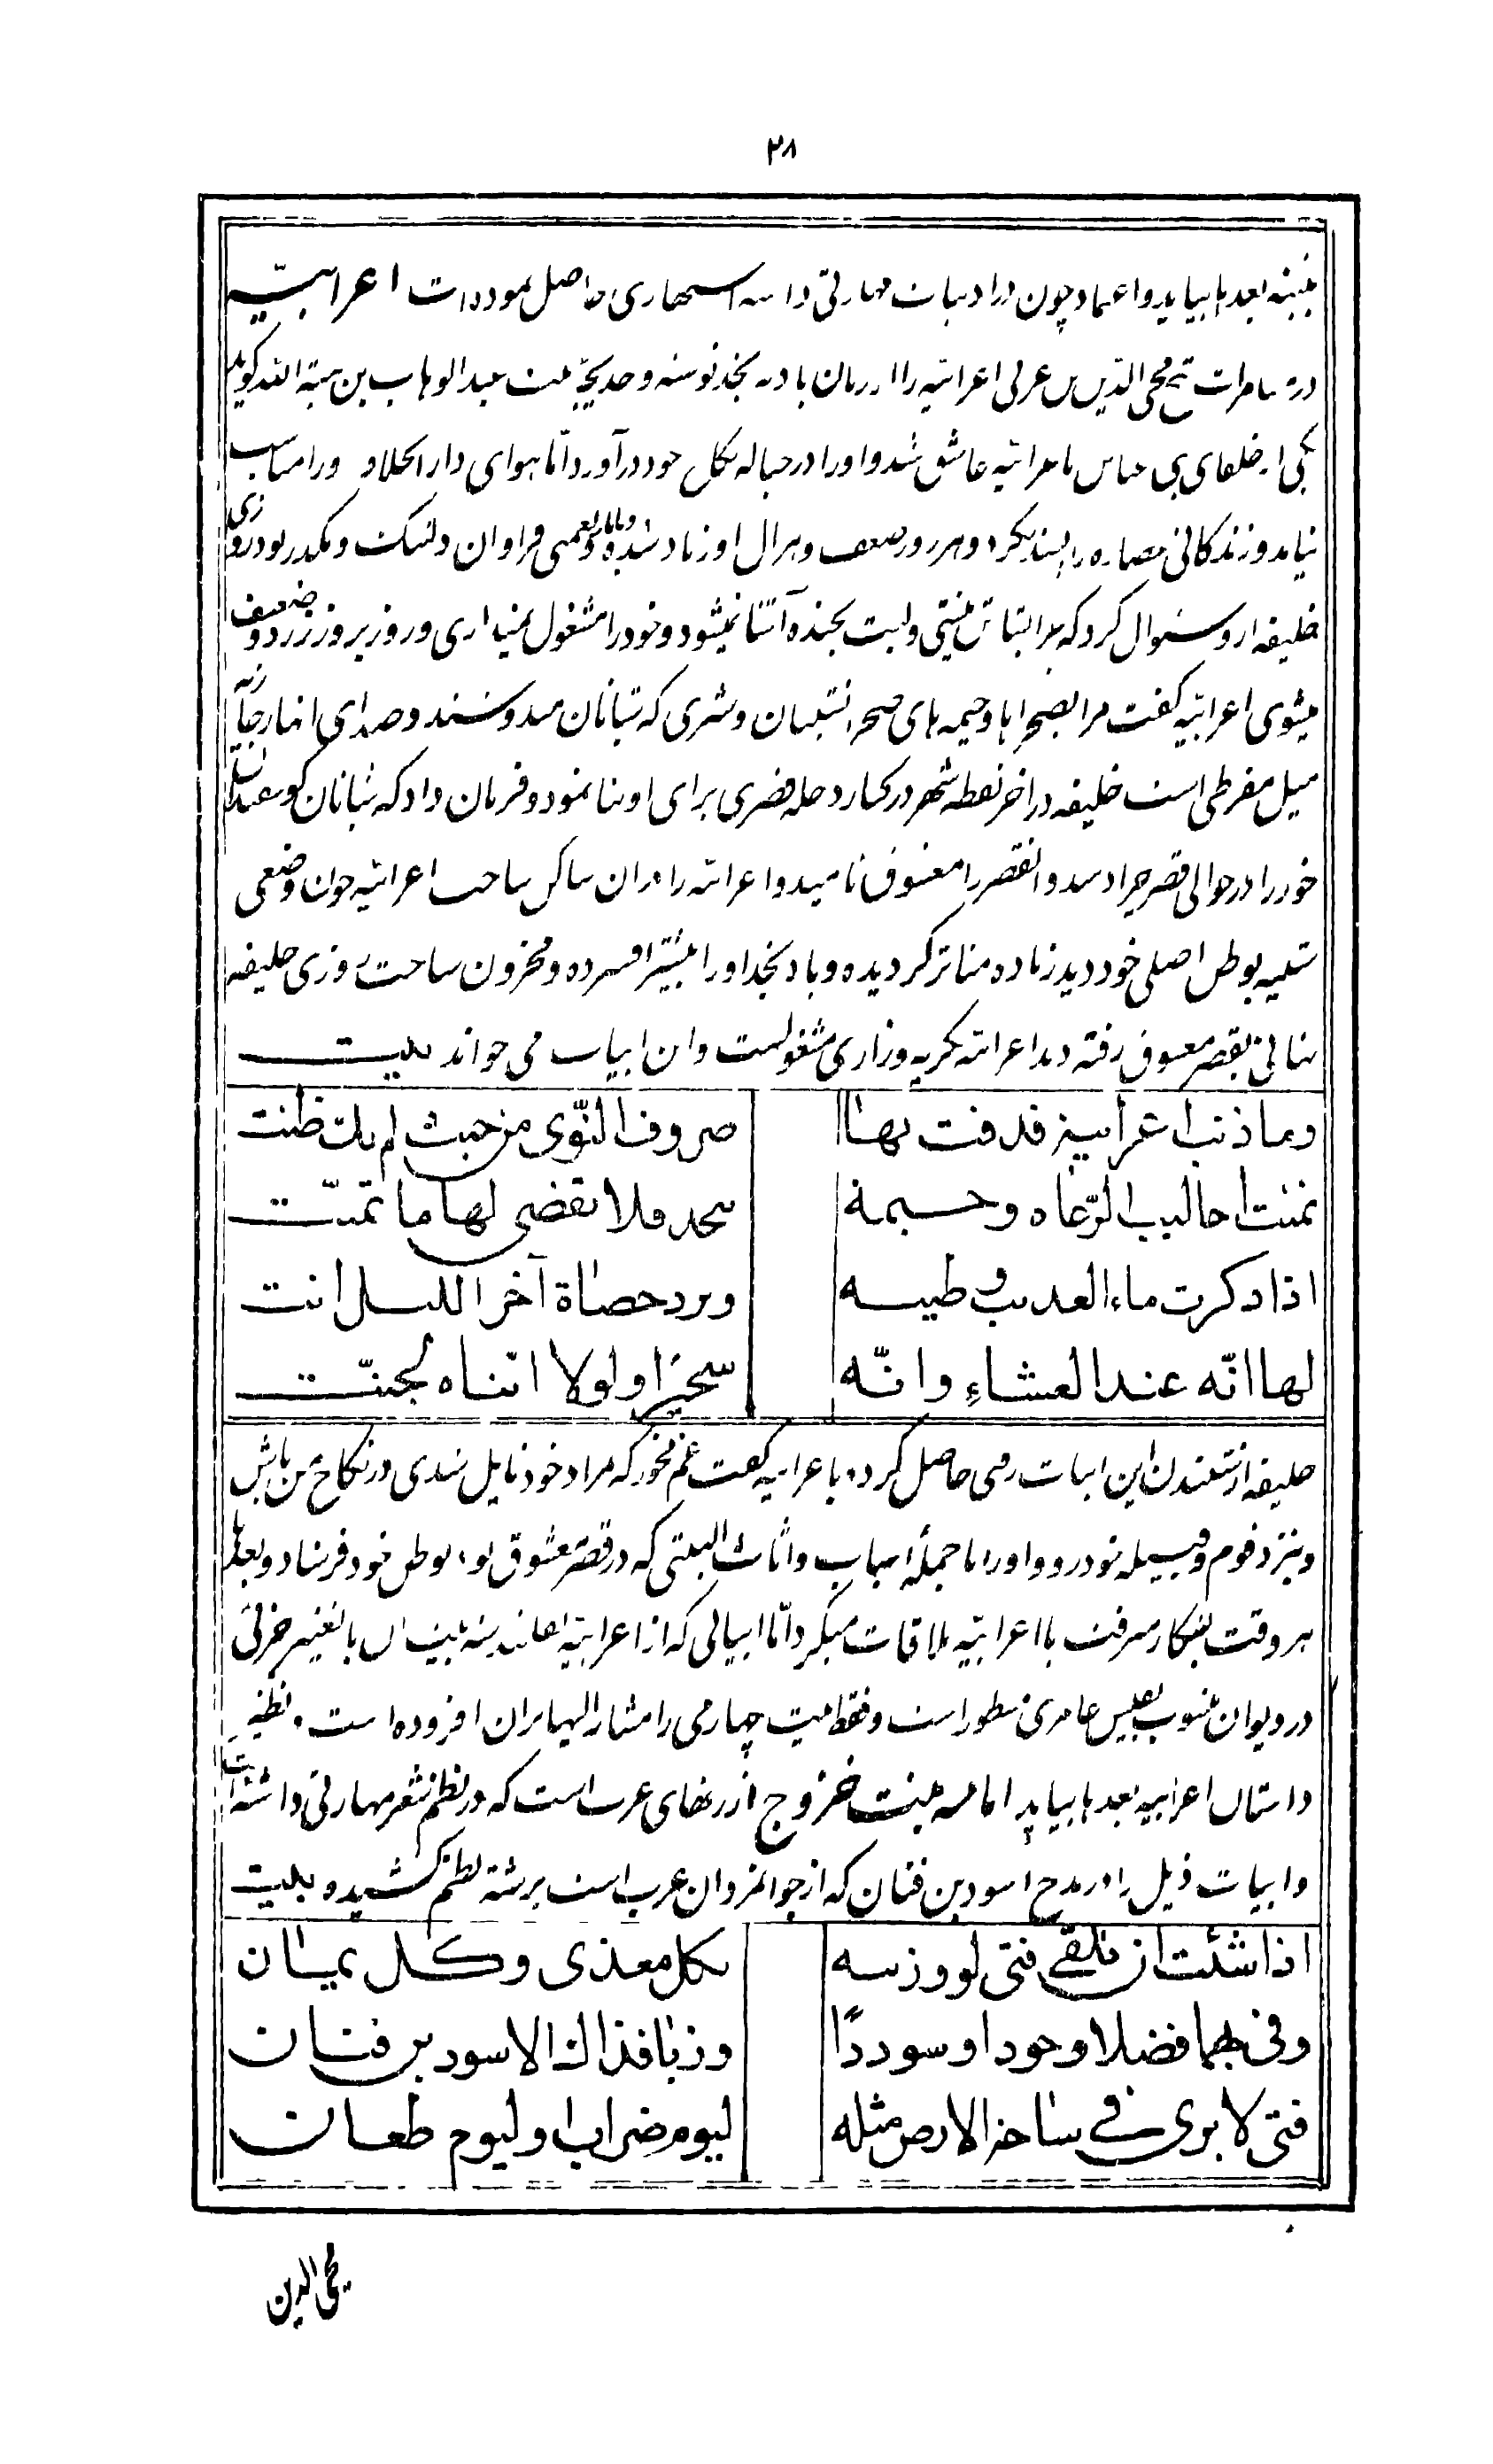 ٣٨
بثینه بعدها بیاید و اعماد چون در ادبیات مهارتی داشته اشتهاری حاصل نموده است اعرابیّه
در مسامرات شیخ محی الدّین بن عربی اعرابیّه را از زمان بادیه نجد نوشته و خدیجه بنت عبدالوهاب بن هبة الله گوید
یکی از خلفای بنی عباس با اعرابیّه عاشق شد و او را در حباله نکاح خود درآورد امّا هوای دار الخلافه او را مناسب
نیامد و زندگانی را پسند نکرد و هر روز ضعف و هزال او زیاد شده و با ناز و نعمتی فراوان دلتنگ و مکدر بود روزی
خلیفه از او سئوال کرد که چرا بشاش نیستی و لبت بخنده آشنا نمیشود و خود را مشغول نمیداری و روز بروز زرد و ضعیف
میشوی اعرابیّه گفت مرا بصحراها و خیمه های صحرا نشینان و شیری که شبانان میدوشند و صدای
میل مفرطی است خلیفه در آخر نقطه شهر در کنار دجله قصری برای او بنا نمود و فرمان داد که شبانان گوسفندان
خود را در حوالی قصر چرا دهند و آنقصر را معشوق نامید و اعرابیّه را در آن ساکن ساخت اعرابیّه چون وضعی
شبیه بوطن اصلی خود دید زیاده متاثر گردیده و یاد نجد او را بیشتر افسرده و محزون ساخت روزی خلیفه
بقصر معشوق رفته دید اعرابیّه بگریه و زاری مشغولست و این ابیات می خواند بیت
وما ذنب اعرابیة قذفت بها
صروف النّوی من حیث لم یك ظنت
تمنّت احالیب الرّعاة وخیمة
بنجد فلا یقضی لها ما تمنّت
اذا ذکرت ماء العذیب وطیبه
وبرد حصاة آخر اللیل انت
لها انّه عند العشاء وانّه
سحیرا ولولا انتاه لجنّت
خلیفه از شنیدن این ابیات رقتی حاصل کرده باعرابیه گفت غم مخور که بمراد خود نایل شدی در نکاح من باش
و بنزد قوم و قبیله خود رو و او را با جمله اسباب و اثاث البیتی که در قصر معشوق بود بوطن خود فرستاد و بعدها
هر وقت بشکار میرفت با اعرابیّه ملاقات میکرد امّا ابیاتی که از اعرابیّه نگاشته شد بیت اول با تغییر جزئی
در دیوان منسوب بقیس عامری مسطور است و فقط بیت چهارمی را مشار الیها بر آن افزوده است و نظیر
داستان اعرابیه بعدها بیاید امامه بنت خزرج از زنهای عرب است که در نظم شعر مهارتی داشته است
و ابیات ذیل را در مدح اسود بن قنان که از جوانمردان عرب است برشته نظم کشیده بیت
اذا شئت ان تلقی فتی لو وزنته
بکل معدّی وکل یمان
وفی بهما فضلا وجودا وسوددًا
وزنا فذاك الاسود بن قنان
فتی لا یری فی ساحة الارض مثله
لیوم ضراب او لیوم طعان
محی الدین